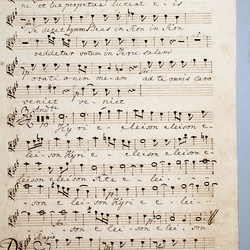 ne et lux perpetua luceat e - is
Te decet hymnus Deus in Sion in Sion
reddetur votum in Jerusalem
orationem meam ad te omnis caro
veniet ve - niet
And:te
Kyri - e eleison eleison e
lei - son Kyri e e - lei - son e
leison eleison eleison
son e - lei - son Kyrie e - lei -
son e lei - son e - lei - son